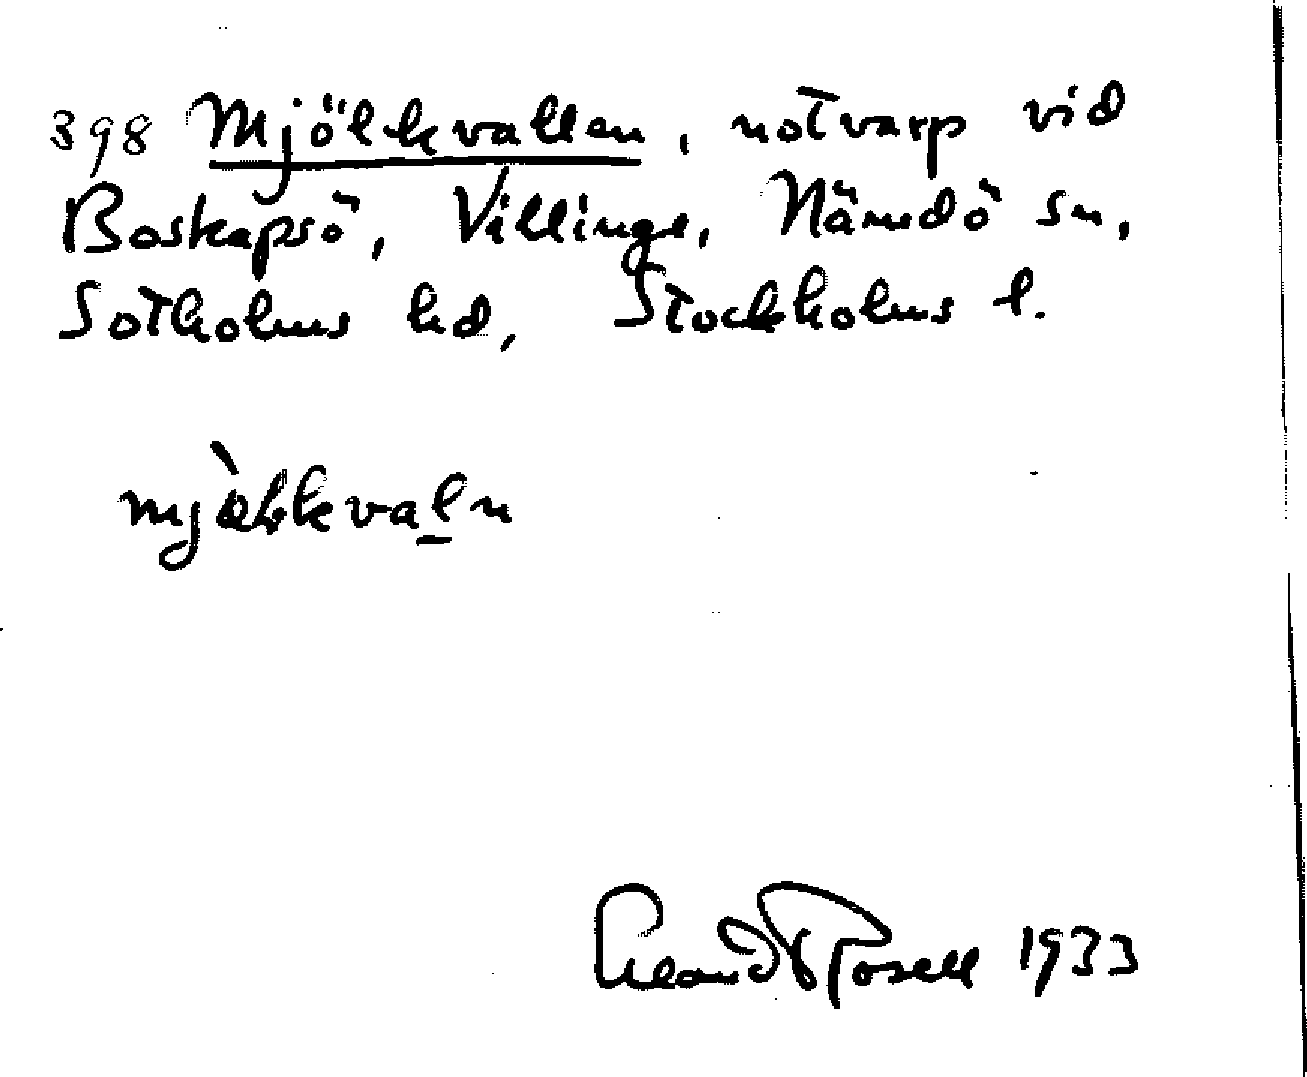 398 Mjölkvallen, notvarp vid
Boskapsö, Villinge, Nämdö sn,
Sotholms hd, Stockholms l.
1933